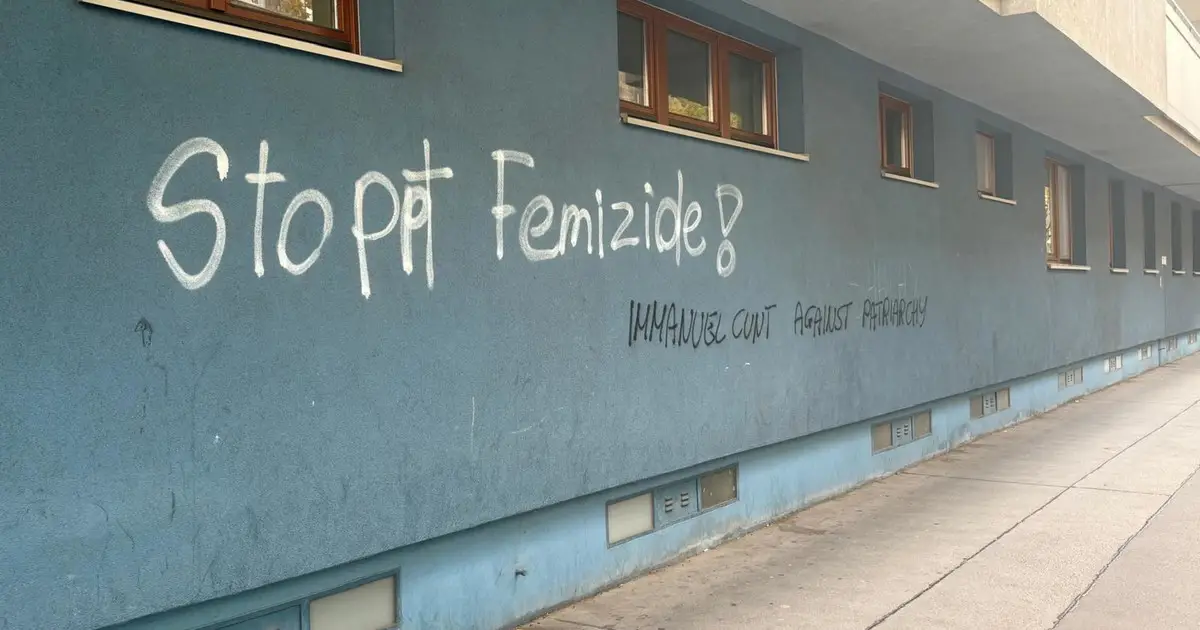 Stoppt Femizide!
IMMANUEL CUNT AGAINST PATRIARCHY